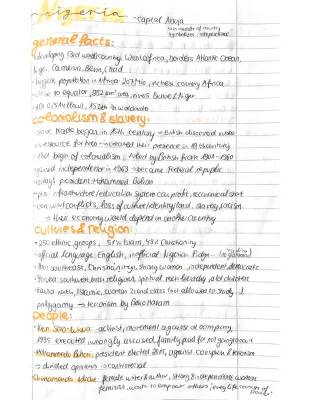 Nigeria
- capital Abuja
general facts:
- developing third world country, West Africa, borders Atlantic Ocean,
Niger, Cameroon, Benin, Chad
- biggest population in Africa: 207 Mio, richest country Africa
- close to equator, 952 km² area, rivers Benue & Niger
colonialism & slavery:
- slave trade began in 15th century → British discovered
as resource for → increased their presence in 19th century
→ that begin of colonialism, ruled by British from 1901-1960
- gained independence in 1963 → became Federal republic
- today's president Mohammed Buhari
- pro: infrastructure/education system can profit, economical
- con: war/conflicts, loss of culture/identity/land, slavery, racism
→ their economy would depend on another country
cultures & religion:
- 250 ethnic groups, 51% Islam, 48% Christianity
- official language: English, inofficial Nigeria Pidgin
- Igbo: southeast, Christianity, strong women, independent, democratic
- Yoruba: southwest, both religions, spiritual
- Hausa: north, Islamic, women 2nd class (not allowed to study),
polygamy → terrorism by Boko Haram
people:
- Ken Saro-Wiwa: activist, movement against oil company,
1995 executed, wrongly accused, family paid for not going to court
- Mohammadu Buhari: president elected 2015, against corruption & terrorism
→ divided opinions → controversial
- Chimamanda Adichie: female writer & author, strong & independent woman
feminist, wants to empower others,